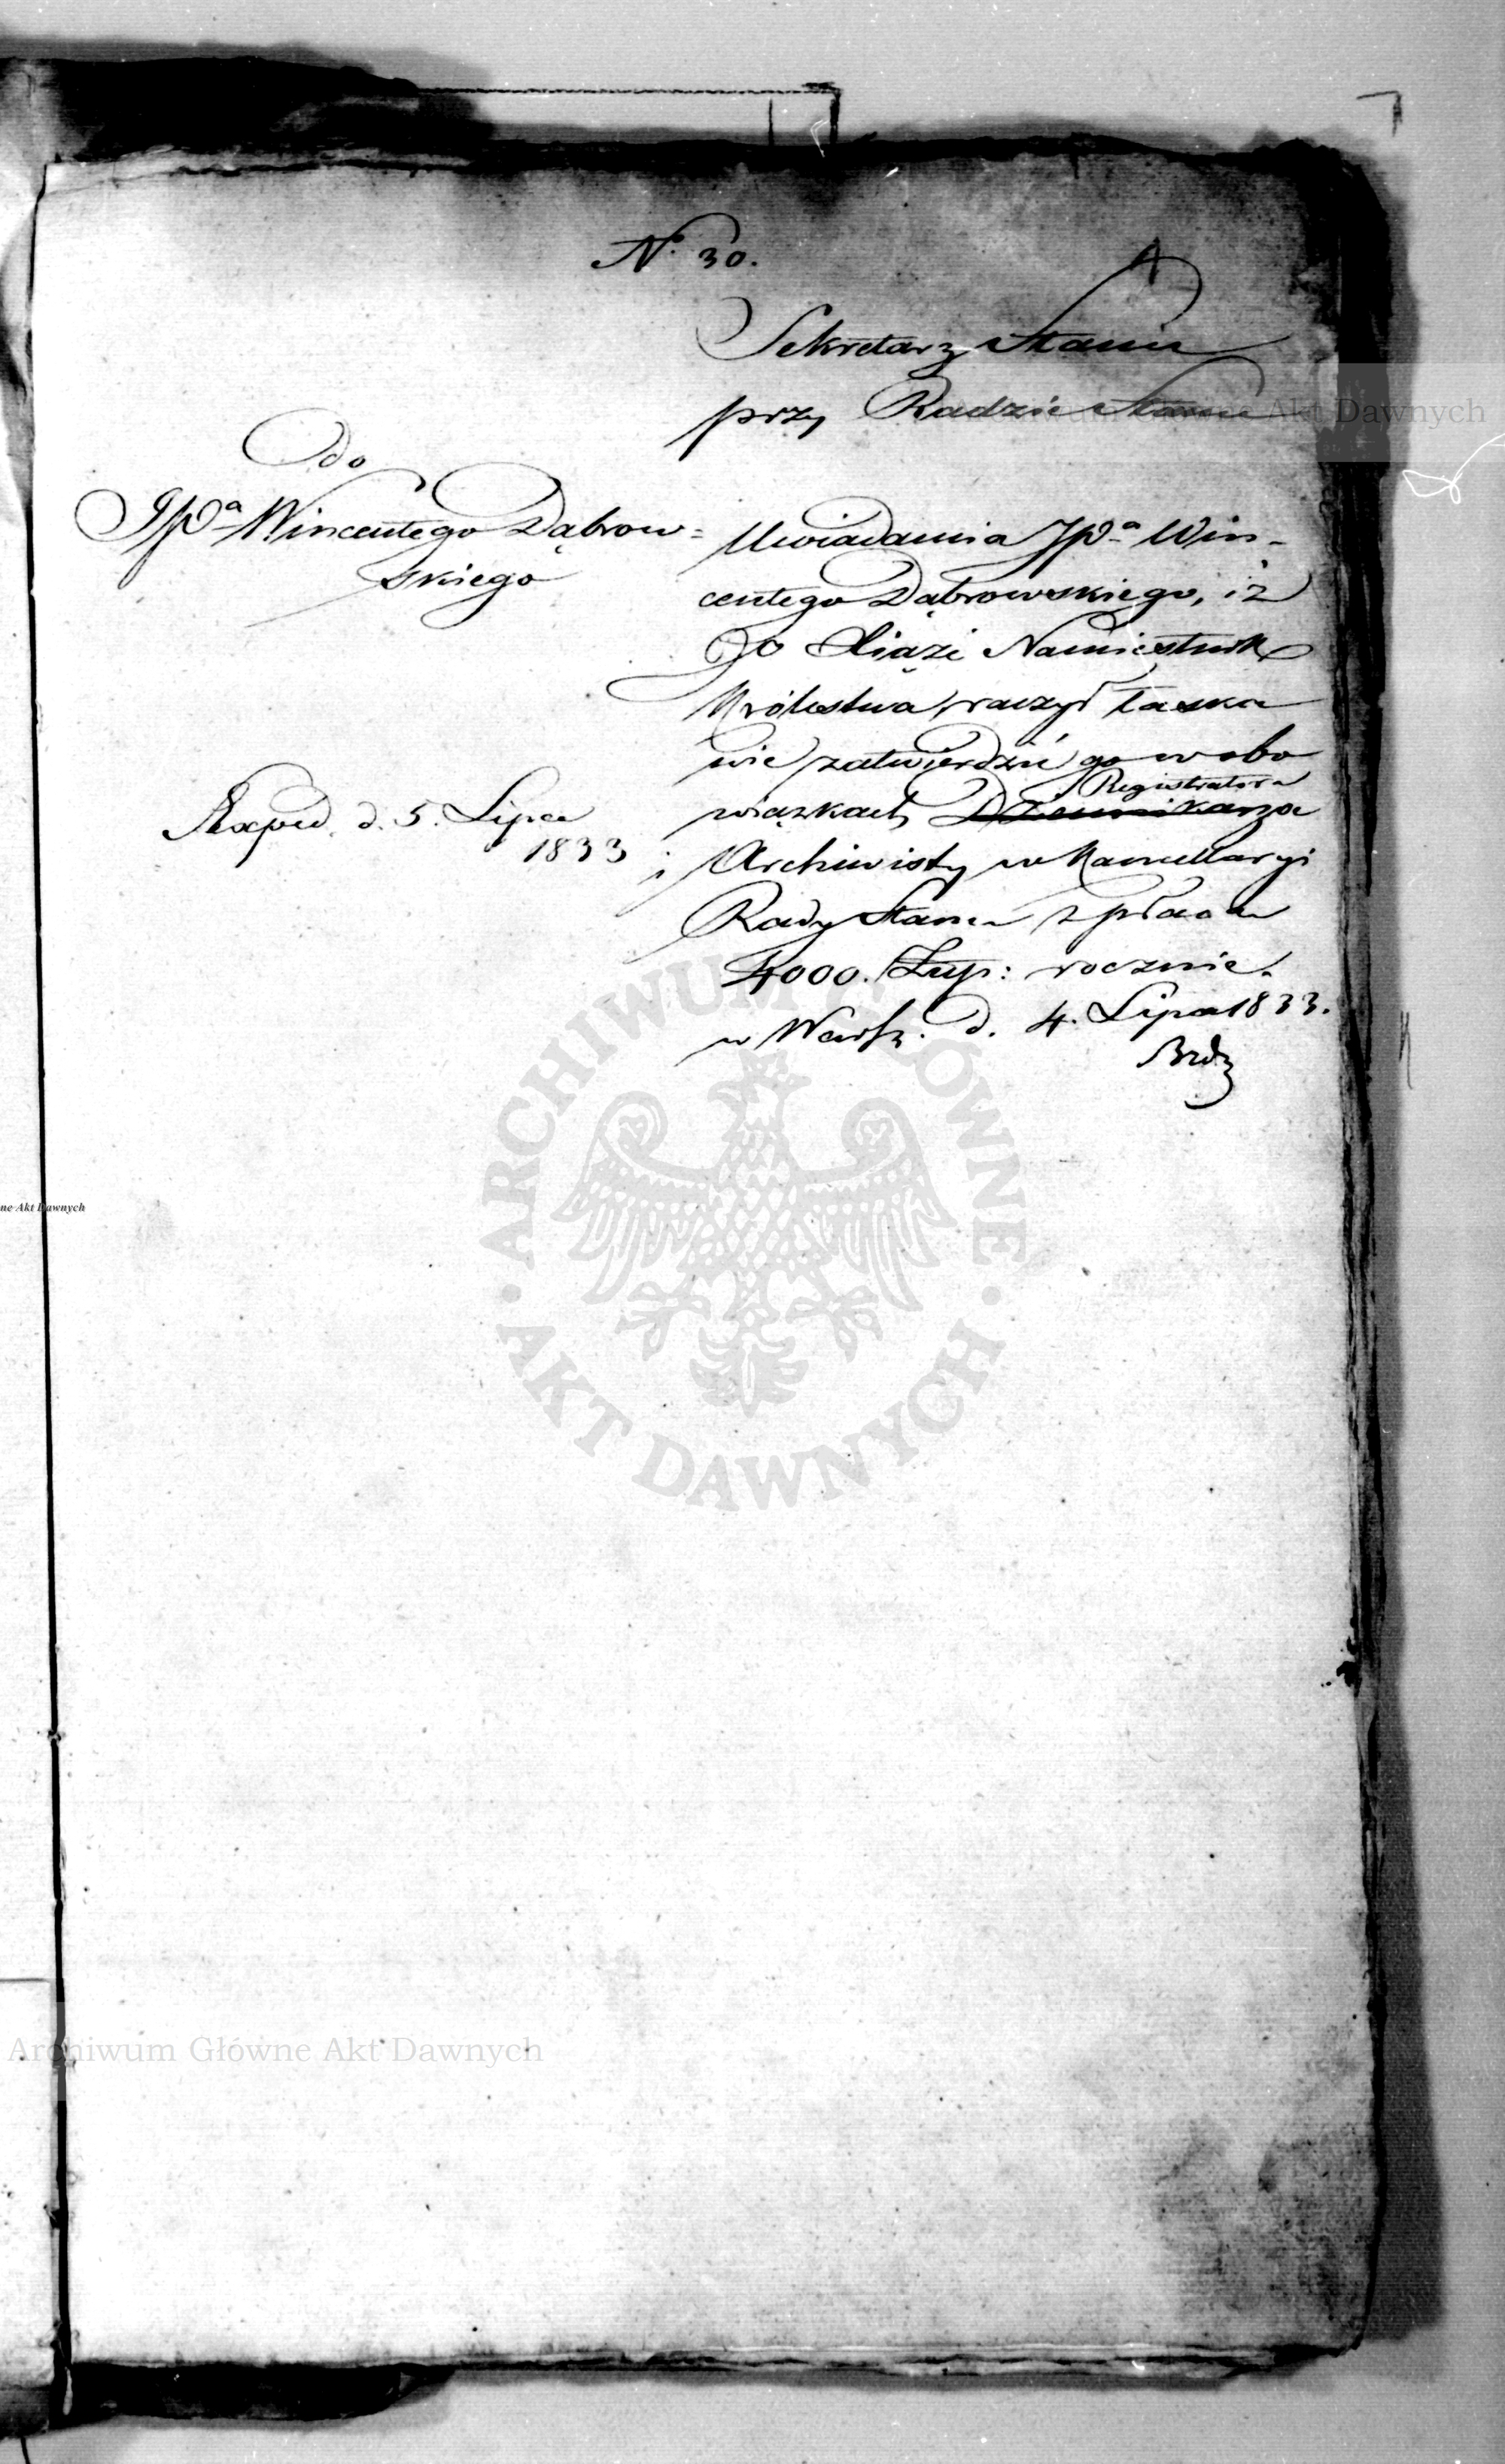 N. 30.
Sekretarz Stanu
przy Radzie Stanu
Do
JPa Wincentego Dąbrow=
skiego
Uwiadamia JPa Win-
centego Dąbrowskiego, iż
JO Xiąże Namiestnik
Królestwa, raczył łaska
wie zatwierdzić go w obo
wiązkach Dziennikarza
Registratora
i Archiwisty w Kancellaryi
Rady Stanu z płacą
4000. Złlp: rocznie.
w Warsz. d. 4. Lipca 1833.
Exped. d. 5. Lipca
1833
ARCHIWUM GŁÓWNE
AKT DAWNYCH
Akt Dawnych
ne Akt Dawnych
Archiwum Główne Akt Dawnych